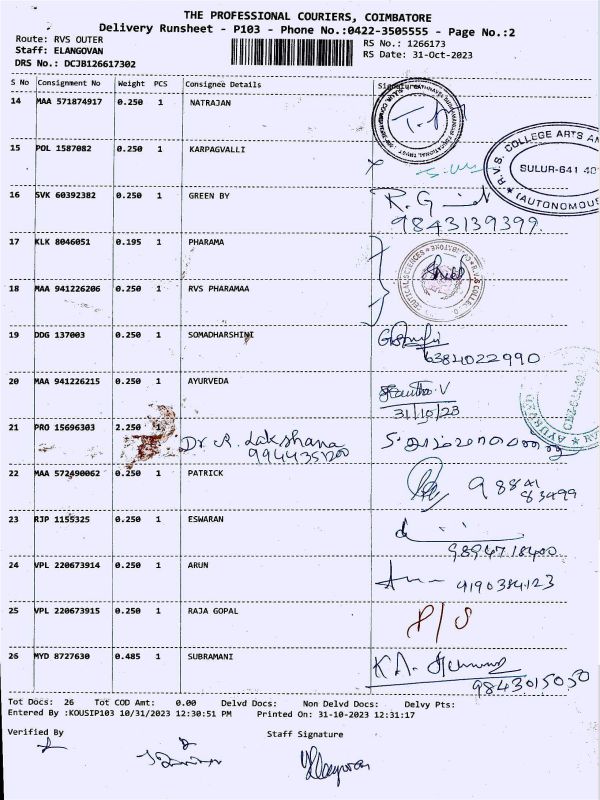 THE PROFESSIONAL COURIERS, COIMBATORE
Delivery Runsheet - P103 - Phone No.:0422-3505555 - Page No.:2
Route: RVS OUTER
RS No.: 1266173
Staff: ELANGOVAN
RS Date: 31-Oct-2023
DRS No.: DCJB126617302
S No Consignment No Weight PCS Consignee Details Signature
14 MAA 571874917 0.250 1 NATRAJAN
15 POL 1587082 0.250 1 KARPAGVALLI
R.V.S. COLLEGE ARTS AN
SULUR-641 40
(AUTONOMOUS
16 SVK 60392382 0.250 1 GREEN BY
9843139399.
17 KLK 8046051 0.195 1 PHARAMA
18 MAA 941226206 0.250 1 RVS PHARAMAA
19 DDG 137003 0.250 1 SOMADHARSHINI
6384022990
20 MAA 941226215 0.250 1 AYURVEDA
31/10/23
21 PRO 15696303 2.250 1 Dr R. Lakshana
9944351200
22 MAA 572490062 1 0.250 PATRICK
98841
83499
23 RJP 1155325 0.250 1 ESWARAN
9894718400
24 VPL 220673914 0.250 1 ARUN
9190384123
25 VPL 220673915 0.250 1 RAJA GOPAL
P/S
26 MYD 8727630 0.485 1 SUBRAMANI
9843015050
Tot Docs: 26 Tot COD Amt: 0.00 Delvd Docs: Non Delvd Docs: Delvy Pts:
Entered By :KOUSIP103 10/31/2023 12:30:51 PM Printed On: 31-10-2023 12:31:17
Verified By Staff Signature
Elangovan